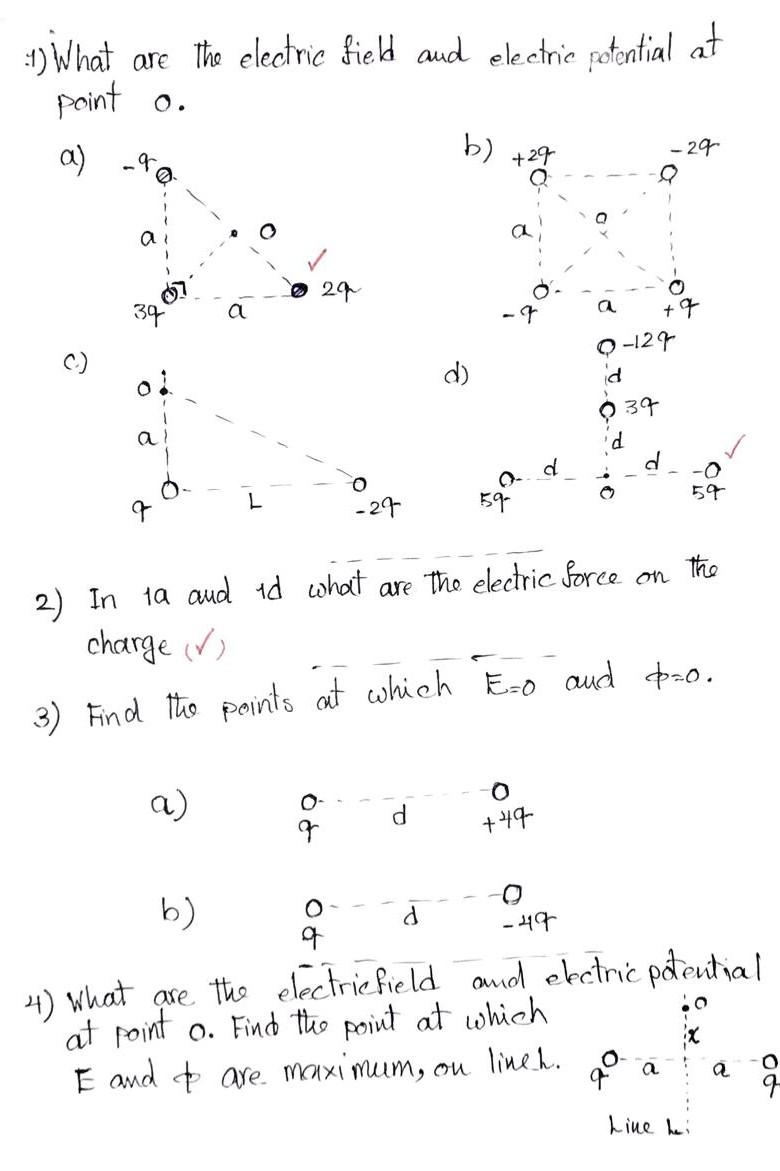 1) What are the electric field and electric potential at
point o.
a) -q
O
a
3q a 2q ✓
b) +2q -2q
o
a
-q a +q
c)
o
a
q L -2q
d) -12q
d
3q
d
d d ✓
5q o 5q
2) In 1a and 1d what are the electric force on the
charge (✓)
3) Find the points at which E=0 and ϕ=0.
a)
q d +4q
b)
q d -4q
4) What are the electric field and electric potential
at point o. Find the point at which
E and ϕ are maximum, on line L.
o
x
q a a q
Line L: